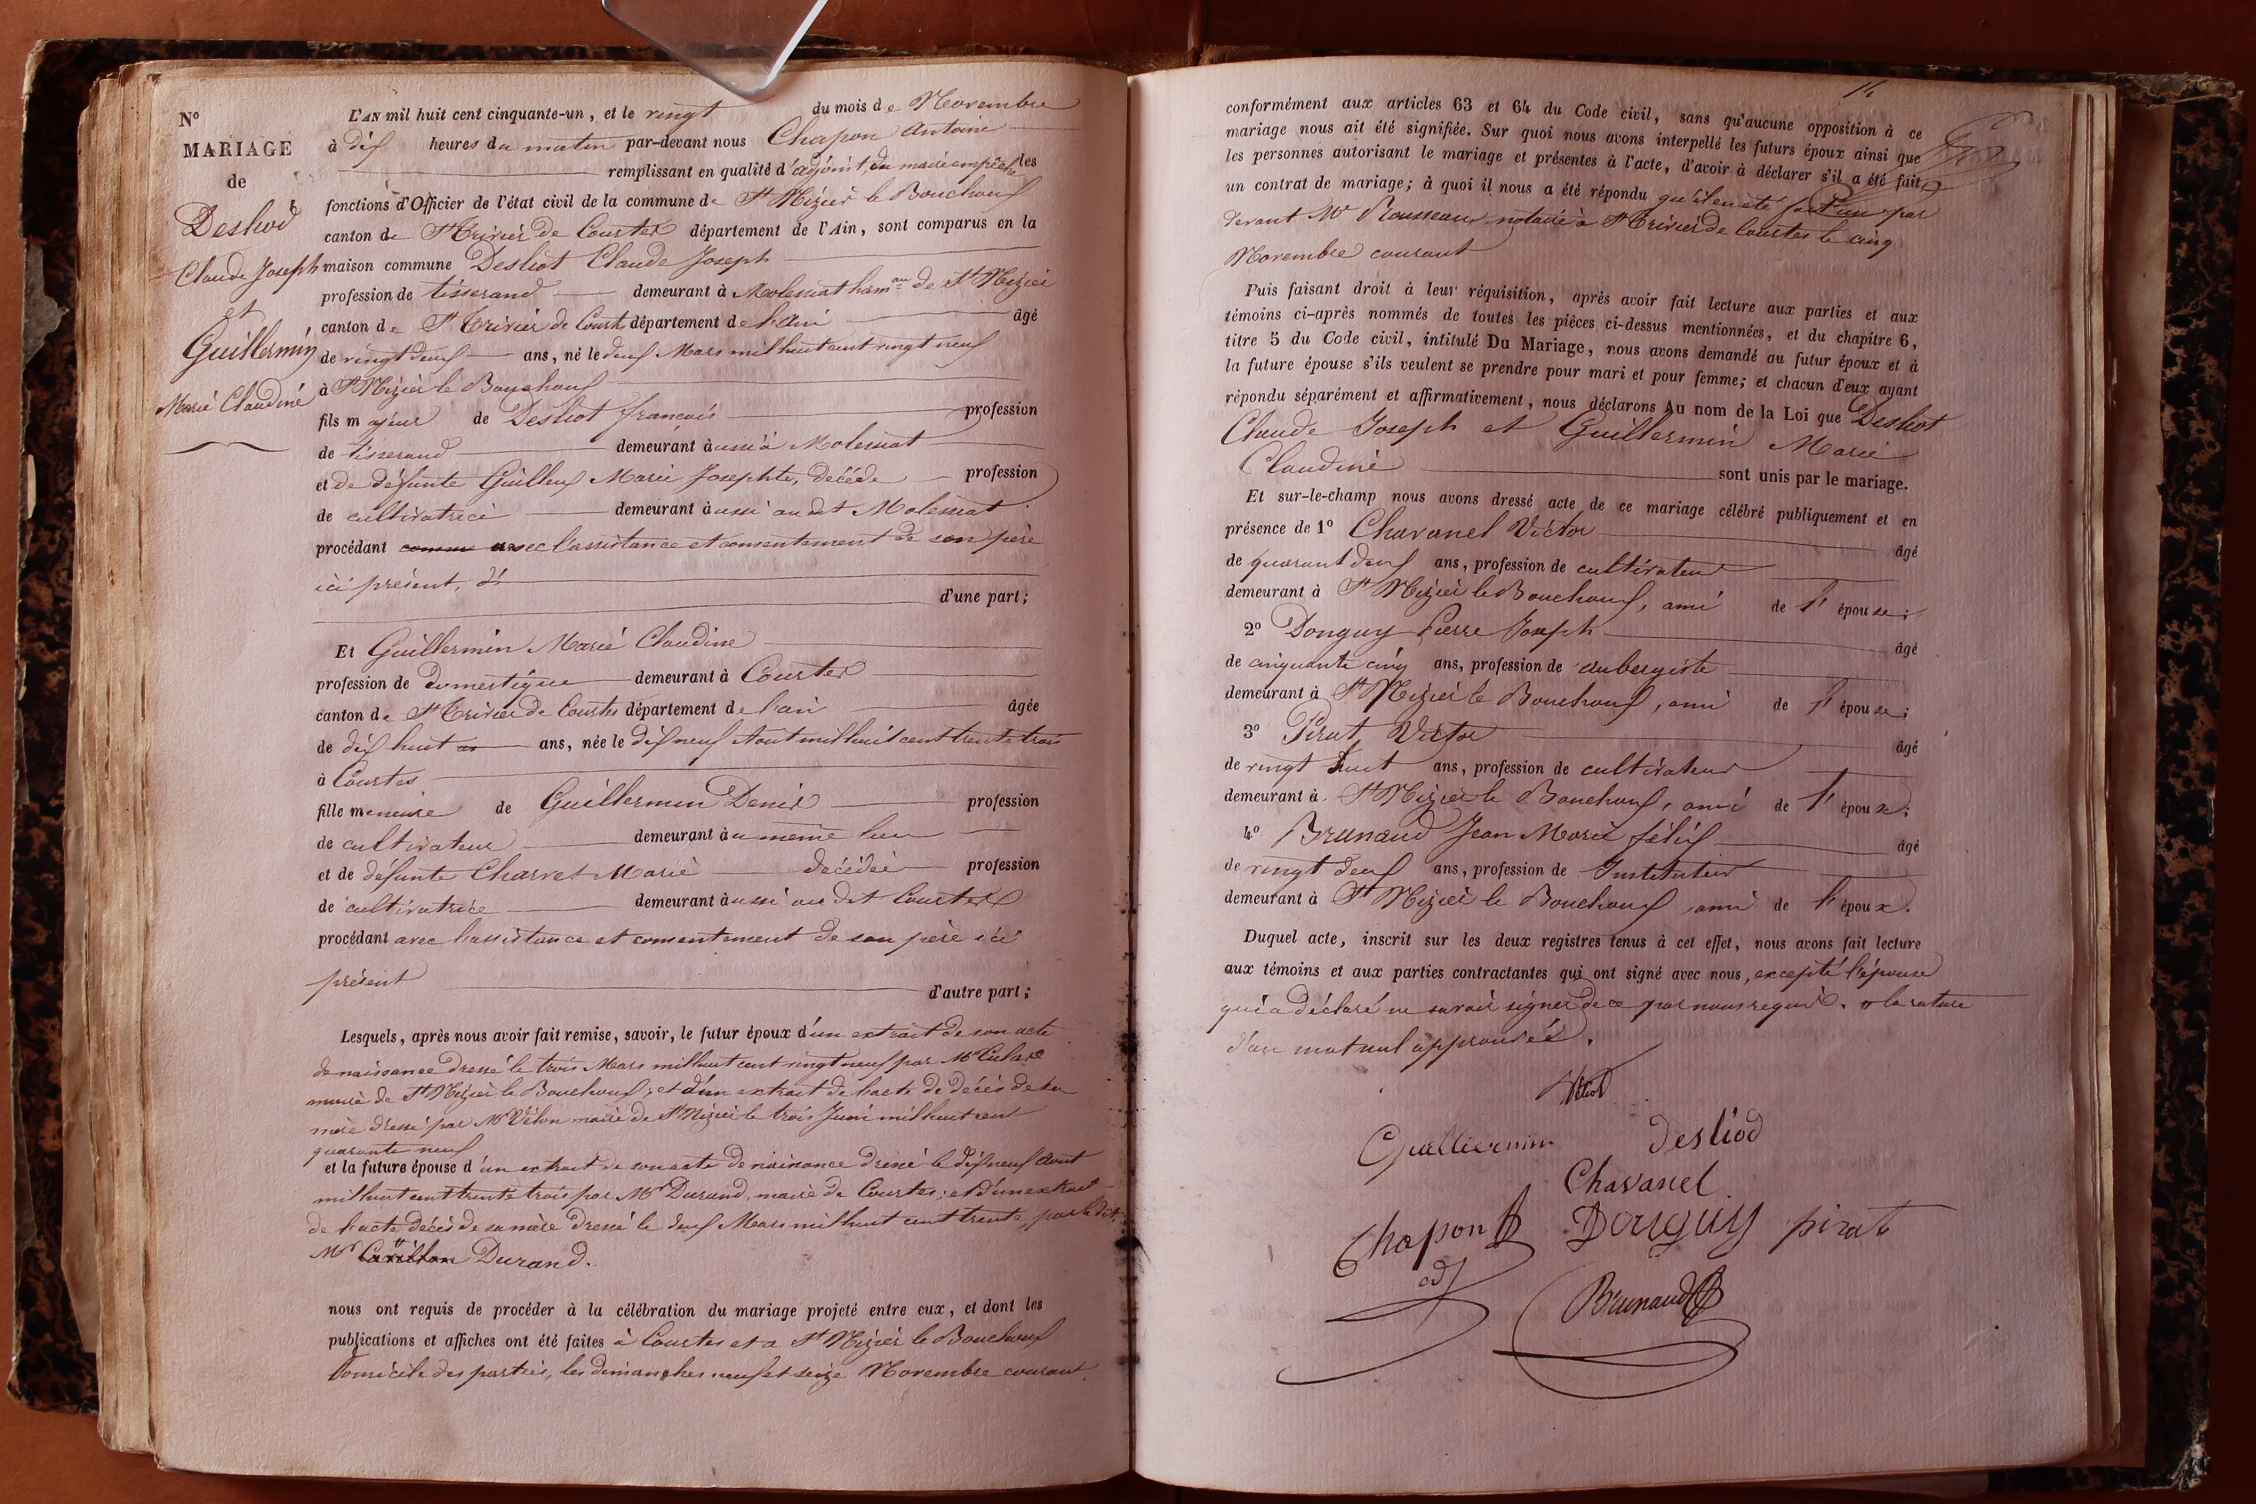 N°
MARIAGE
de
Desliod
Claude Joseph
et
Guillermin
Marie Claudine
L'AN mil huit cent cinquante-un, et le vingt du mois de Novembre
à dix heures du matin par-devant nous Chapon Antoine
remplissant en qualité d'adjoint, du maire empêché les
fonctions d'Officier de l'état civil de la commune de St Nizier le Bouchoux
canton de St Trivier de Courtes département de l'Ain, sont comparus en la
maison commune Desliot Claude Joseph
profession de tisserand demeurant à Molessiat hameau de St Nizier
canton de St Trivier de Courtes département de l'ain âgé
de vingt deux ans, né le deux Mars mil huit cent vingt neuf
à St Nizier le Bouchoux
fils majeur de Desliot françois profession
de tisserand demeurant aussi à Molessiat
et de défunte Guilleux Marie Josephte, décédé profession
de cultivatrice demeurant aussi au dit Molessiat
procédant comme avec l'assistance et consentement de son père
ici présent, d'
d'une part;
Et Guillermin Marie Claudine
profession de domestique demeurant à Courtes
canton de St Trivier de Courtes département de l'ain âgée
de dix huit ans, née le dix neuf Aout mil huit cent trente trois
à Courtes
fille mineure de Guillermin Denis profession
de cultivateur demeurant au même lieu
et de défunte Charvet Marie décédée profession
de cultivatrice demeurant aussi au dit Courtes
procédant avec l'assistance et consentement de son père ici
présent
d'autre part;
Lesquels, après nous avoir fait remise, savoir, le futur époux d'un extrait de son acte
de naissance dressé le trois Mars mil huit cent vingt neuf par Mr
maire de St Nizier le Bouchoux; et d'un extrait de l'acte de décès de sa
mère dressé par Mr Vélon maire de St Nizier le trois Juin mil huit cent
quarante neuf
et la future épouse d'un extrait de son acte de naissance dressé le dix neuf Aout
mil huit cent trente trois par Mr Durand, maire de Courtes; et d'un extrait
de l'acte décès de sa mère dressé le deux Mars mil huit cent trente par le dit
Mr Durand.
nous ont requis de procéder à la célébration du mariage projeté entre eux, et dont les
publications et affiches ont été faites à Courtes et a St Nizier le Bouchoux
domicile des parties, les dimanches neuf et seize Novembre courant.
14
conformément aux articles 63 et 64 du Code civil, sans qu'aucune opposition à ce
mariage nous ait été signifiée. Sur quoi nous avons interpellé les futurs époux ainsi que
les personnes autorisant le mariage et présentes à l'acte, d'avoir à déclarer s'il a été fait
un contrat de mariage; à quoi il nous a été répondu qu'il en a été fait un par
devant Me Rousseau notaire à St Trivier de Courtes le cinq
Novembre courant
Puis faisant droit à leur réquisition, après avoir fait lecture aux parties et aux
témoins ci-après nommés de toutes les pièces ci-dessus mentionnées, et du chapitre 6,
titre 5 du Code civil, intitulé Du Mariage, nous avons demandé au futur époux et à
la future épouse s'ils veulent se prendre pour mari et pour femme; et chacun d'eux ayant
répondu séparément et affirmativement, nous déclarons Au nom de la Loi que Desliot
Claude Joseph et Guillermin Marie
Claudine sont unis par le mariage.
Et sur-le-champ nous avons dressé acte de ce mariage célébré publiquement et en
présence de 1° Chavanel Victor âgé
de quarant deux ans, profession de cultivateur
demeurant à St Nizier le Bouchoux, ami de l'épouse;
2° Donguy Pierre Joseph âgé
de cinquante cinq ans, profession de aubergiste
demeurant à St Nizier le Bouchoux, ami de l'épouse;
3° Pirat, Victor âgé
de vingt huit ans, profession de cultivateur
demeurant à St Nizier le Bouchoux, ami de l'époux;
4° Brunaud Jean Marie félix âgé
de vingt deux ans, profession de Instituteur
demeurant à St Nizier le Bouchoux ami de l'époux.
Duquel acte, inscrit sur les deux registres tenus à cet effet, nous avons fait lecture
aux témoins et aux parties contractantes qui ont signé avec nous, excepté l'épouse
qui a déclaré ne savoir signer de ce par nous requis. la rature
d'un mot nul approuvée.
Guillermin desliod
Chavanel
Chapon Donguy pirat
adj
Brunaud